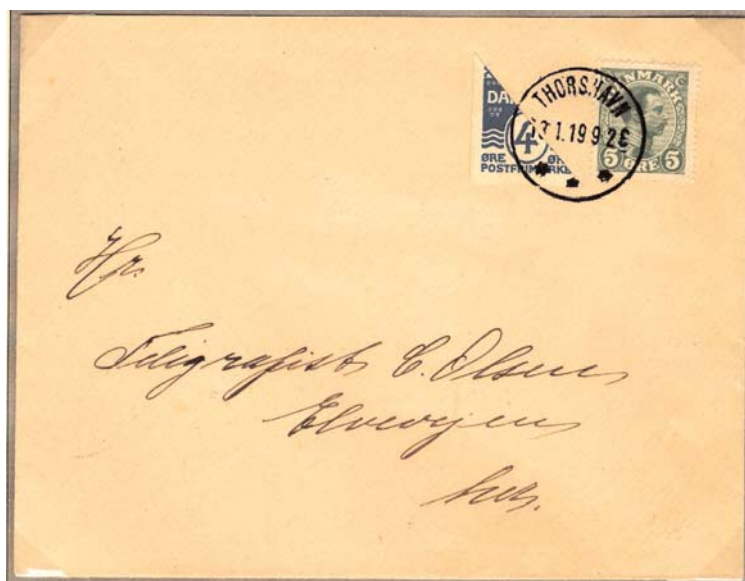 DAN
4
ØRE
POSTFRIM RKE
THORSHAVN
13 1.19 9.2E
DANMARK
5 ØRE 5
Hr.
Telegrafist C. Olsen
Elvevejen
her.